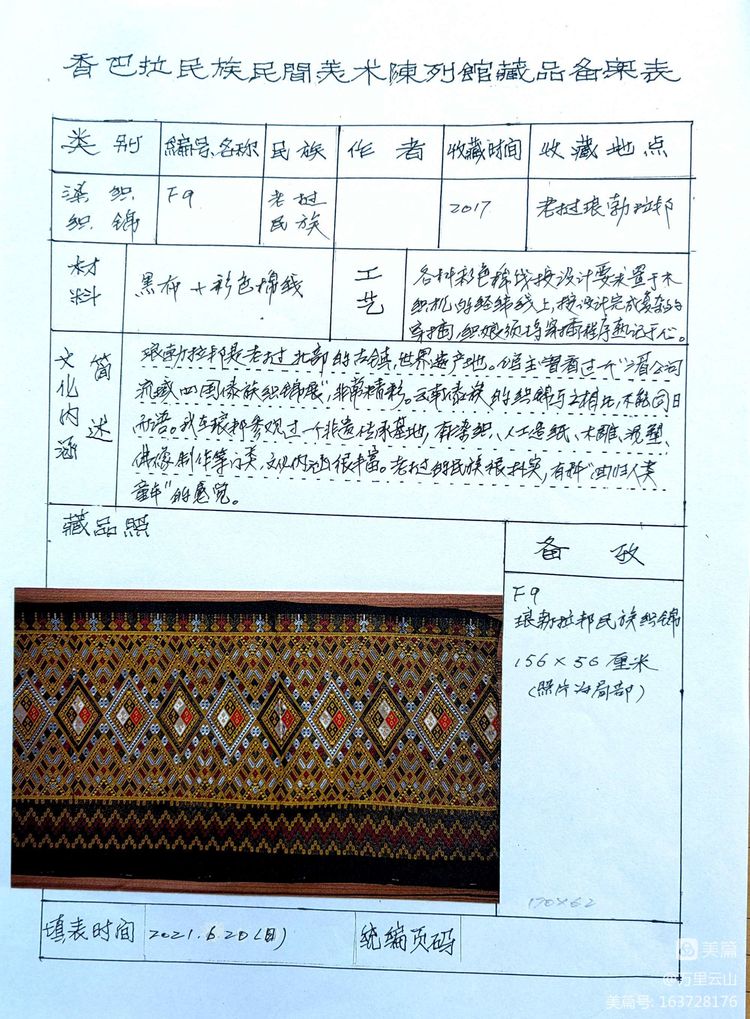 香巴拉民族民間美术陳列館藏品备案表
类别 編号、名称 民族 作者 收藏时间 收藏地点
染织 F9 老挝 2017 老挝琅勃拉邦
织锦 民族
材料 黑布+彩色棉线 工艺 各种彩色棉线按设计要求置于木
织机的经纬线上,按设计完成复杂的
穿插,织娘须将穿插程序熟记于心。
文化内涵 简述
琅勃拉邦是老挝北部的古镇,世界遗产地。馆主曾看过一个"湄公河
流域四国傣族织锦展",非常精彩。云南傣族的织锦与之相比,不能同日
而语。我在琅邦参观过一个非遗传承基地,有染织、人工造纸、木雕、泥塑、
佛像制作等门类,文化内涵很丰富。老挝的民族很朴实,有种"回归人类
童年"的感觉。
藏品照
备攷
F9
琅勃拉邦民族织锦
156×56厘米
(照片为局部)
170×62
填表时间 2021.6.20(日) 统编页码
美篇
@万里云山
美篇号: 163728176